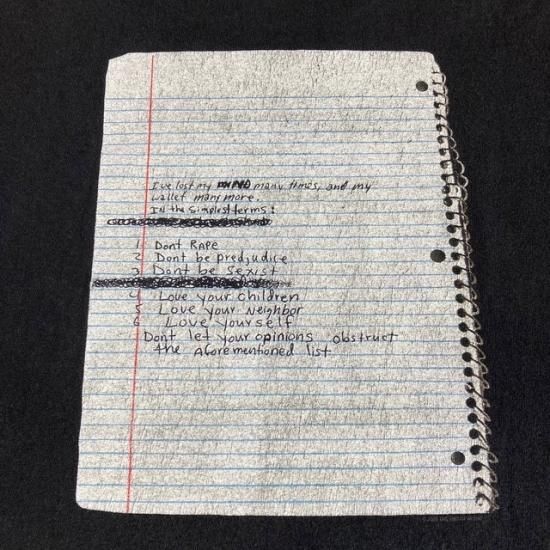 I've lost my MIND many times, and my
wallet many more.
In the simplest terms:
1 Dont RAPE
2 Dont be predjudice
3 Dont be Sexist
4 Love your children
5 Love your Neighbor
6 Love yourself
Dont let your opinions obstruct
the Aforementioned list